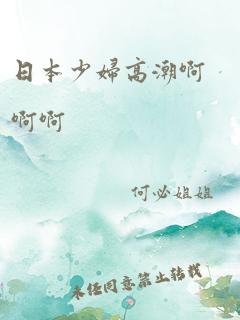 日本少婦高潮啊
啊啊
何必姐姐
未经同意禁止转载